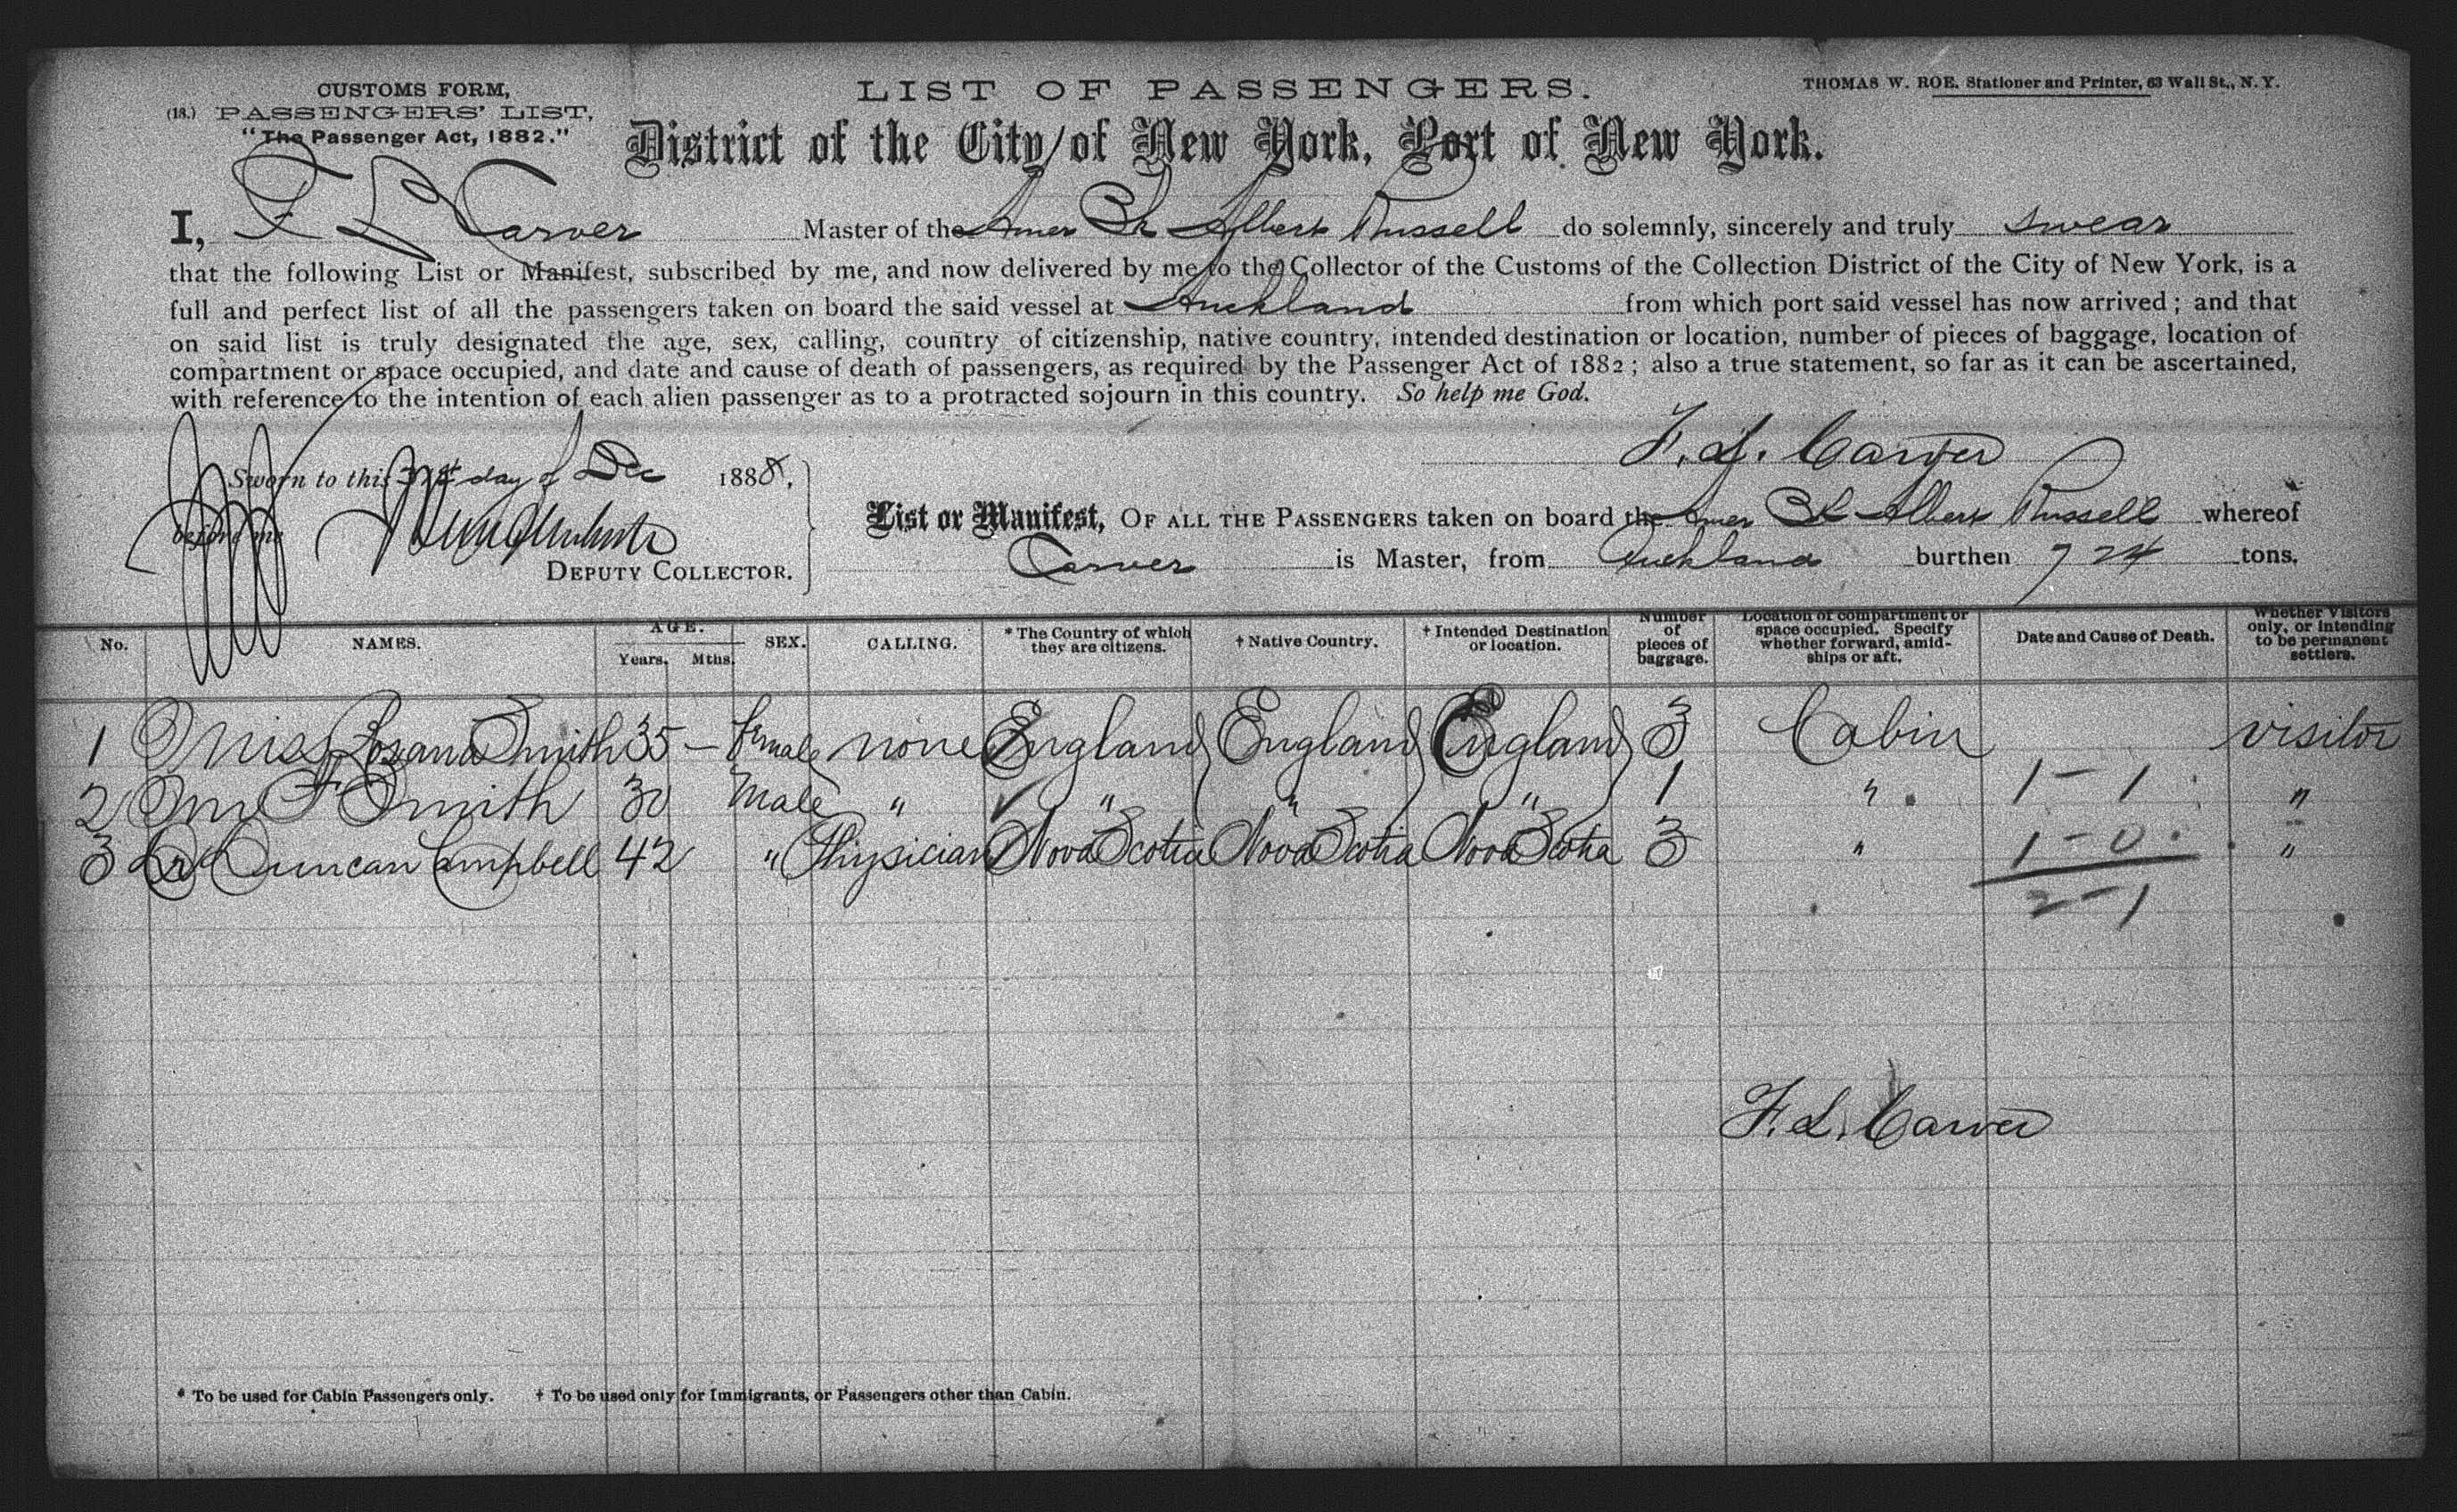 CUSTOMS FORM,
(18.) PASSENGERS' LIST,
"The Passenger Act, 1882."
LIST OF PASSENGERS.
THOMAS W. ROE, Stationer and Printer, 63 Wall St., N. Y.
District of the City of New York, Port of New York.
I, F L Carver Master of the Amer Bk Albert Russell do solemnly, sincerely and truly swear
that the following List or Manifest, subscribed by me, and now delivered by me to the Collector of the Customs of the Collection District of the City of New York, is a
full and perfect list of all the passengers taken on board the said vessel at Auckland from which port said vessel has now arrived; and that
on said list is truly designated the age, sex, calling, country of citizenship, native country, intended destination or location, number of pieces of baggage, location of
compartment or space occupied, and date and cause of death of passengers, as required by the Passenger Act of 1882; also a true statement, so far as it can be ascertained,
with reference to the intention of each alien passenger as to a protracted sojourn in this country. So help me God.
F. L. Carver
Sworn to this 31st day of Dec 1888,
before me
DEPUTY COLLECTOR.
List or Manifest, OF ALL THE PASSENGERS taken on board the Amer Bk Albert Russell whereof
Carver is Master, from Auckland burthen 724 tons.
No. NAMES. AGE. Years. Mths. SEX. CALLING. * The Country of which they are citizens. † Native Country. † Intended Destination or location. Number of pieces of baggage. Location of compartment or space occupied. Specify whether forward, amidships or aft. Date and Cause of Death. Whether Visitors only, or intending to be permanent settlers.
1 Miss Rosana Smith 35 — female none England England England 3 Cabin visitor
2 Mr F Smith 30 Male " " " " 1 " 1 - 1 "
3 Dr Duncan Campbell 42 " Physician Nova Scotia Nova Scotia Nova Scotia 3 " 1 - 0 "
2 - 1
F. L. Carver
* To be used for Cabin Passengers only. † To be used only for Immigrants, or Passengers other than Cabin.